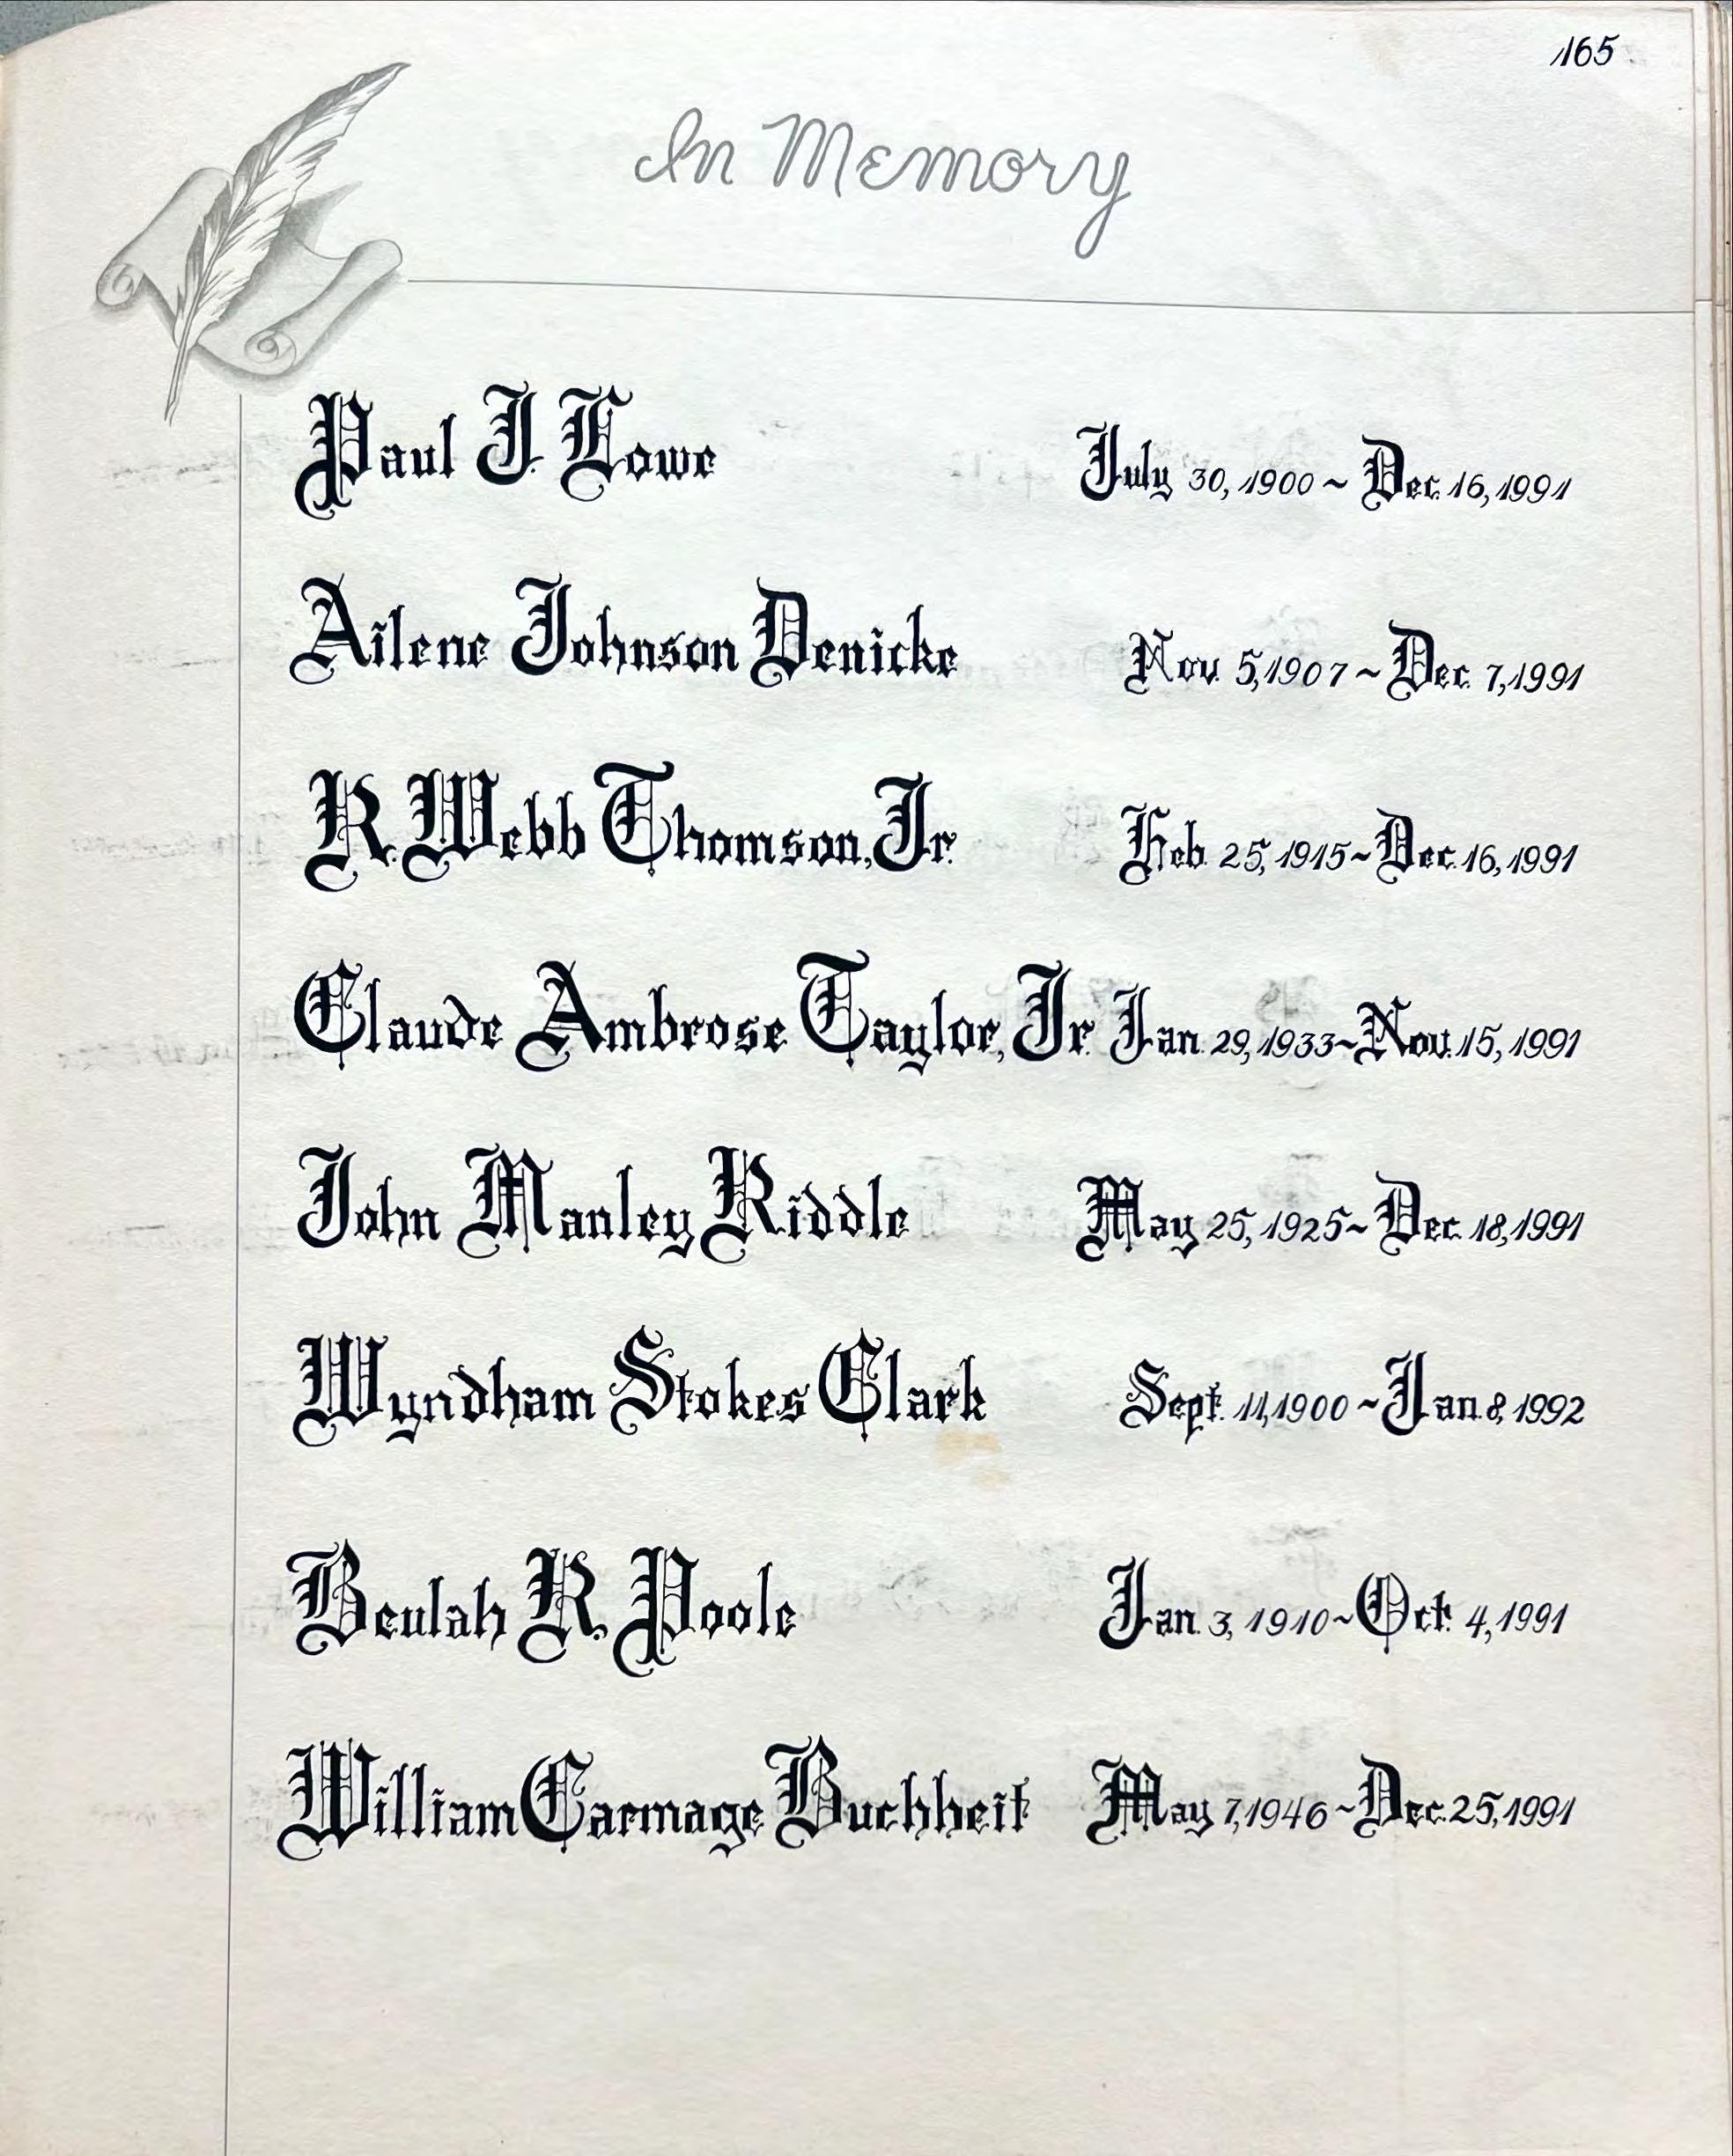 165
In Memory
Paul J. Lowe July 30, 1900 ~ Dec. 16, 1991
Ailene Johnson Denicke Nov. 5, 1907 ~ Dec. 7, 1991
R. Webb Thomson, Jr. Feb. 25, 1915 ~ Dec. 16, 1991
Claude Ambrose Taylor, Jr. Jan. 29, 1933 ~ Nov. 15, 1991
John Manley Riddle May 25, 1925 ~ Dec. 18, 1991
Wyndham Stokes Clark Sept. 11, 1900 ~ Jan. 8, 1992
Beulah R. Poole Jan. 3, 1910 ~ Oct. 4, 1991
William Carmage Buchheit May 7, 1946 ~ Dec. 25, 1991